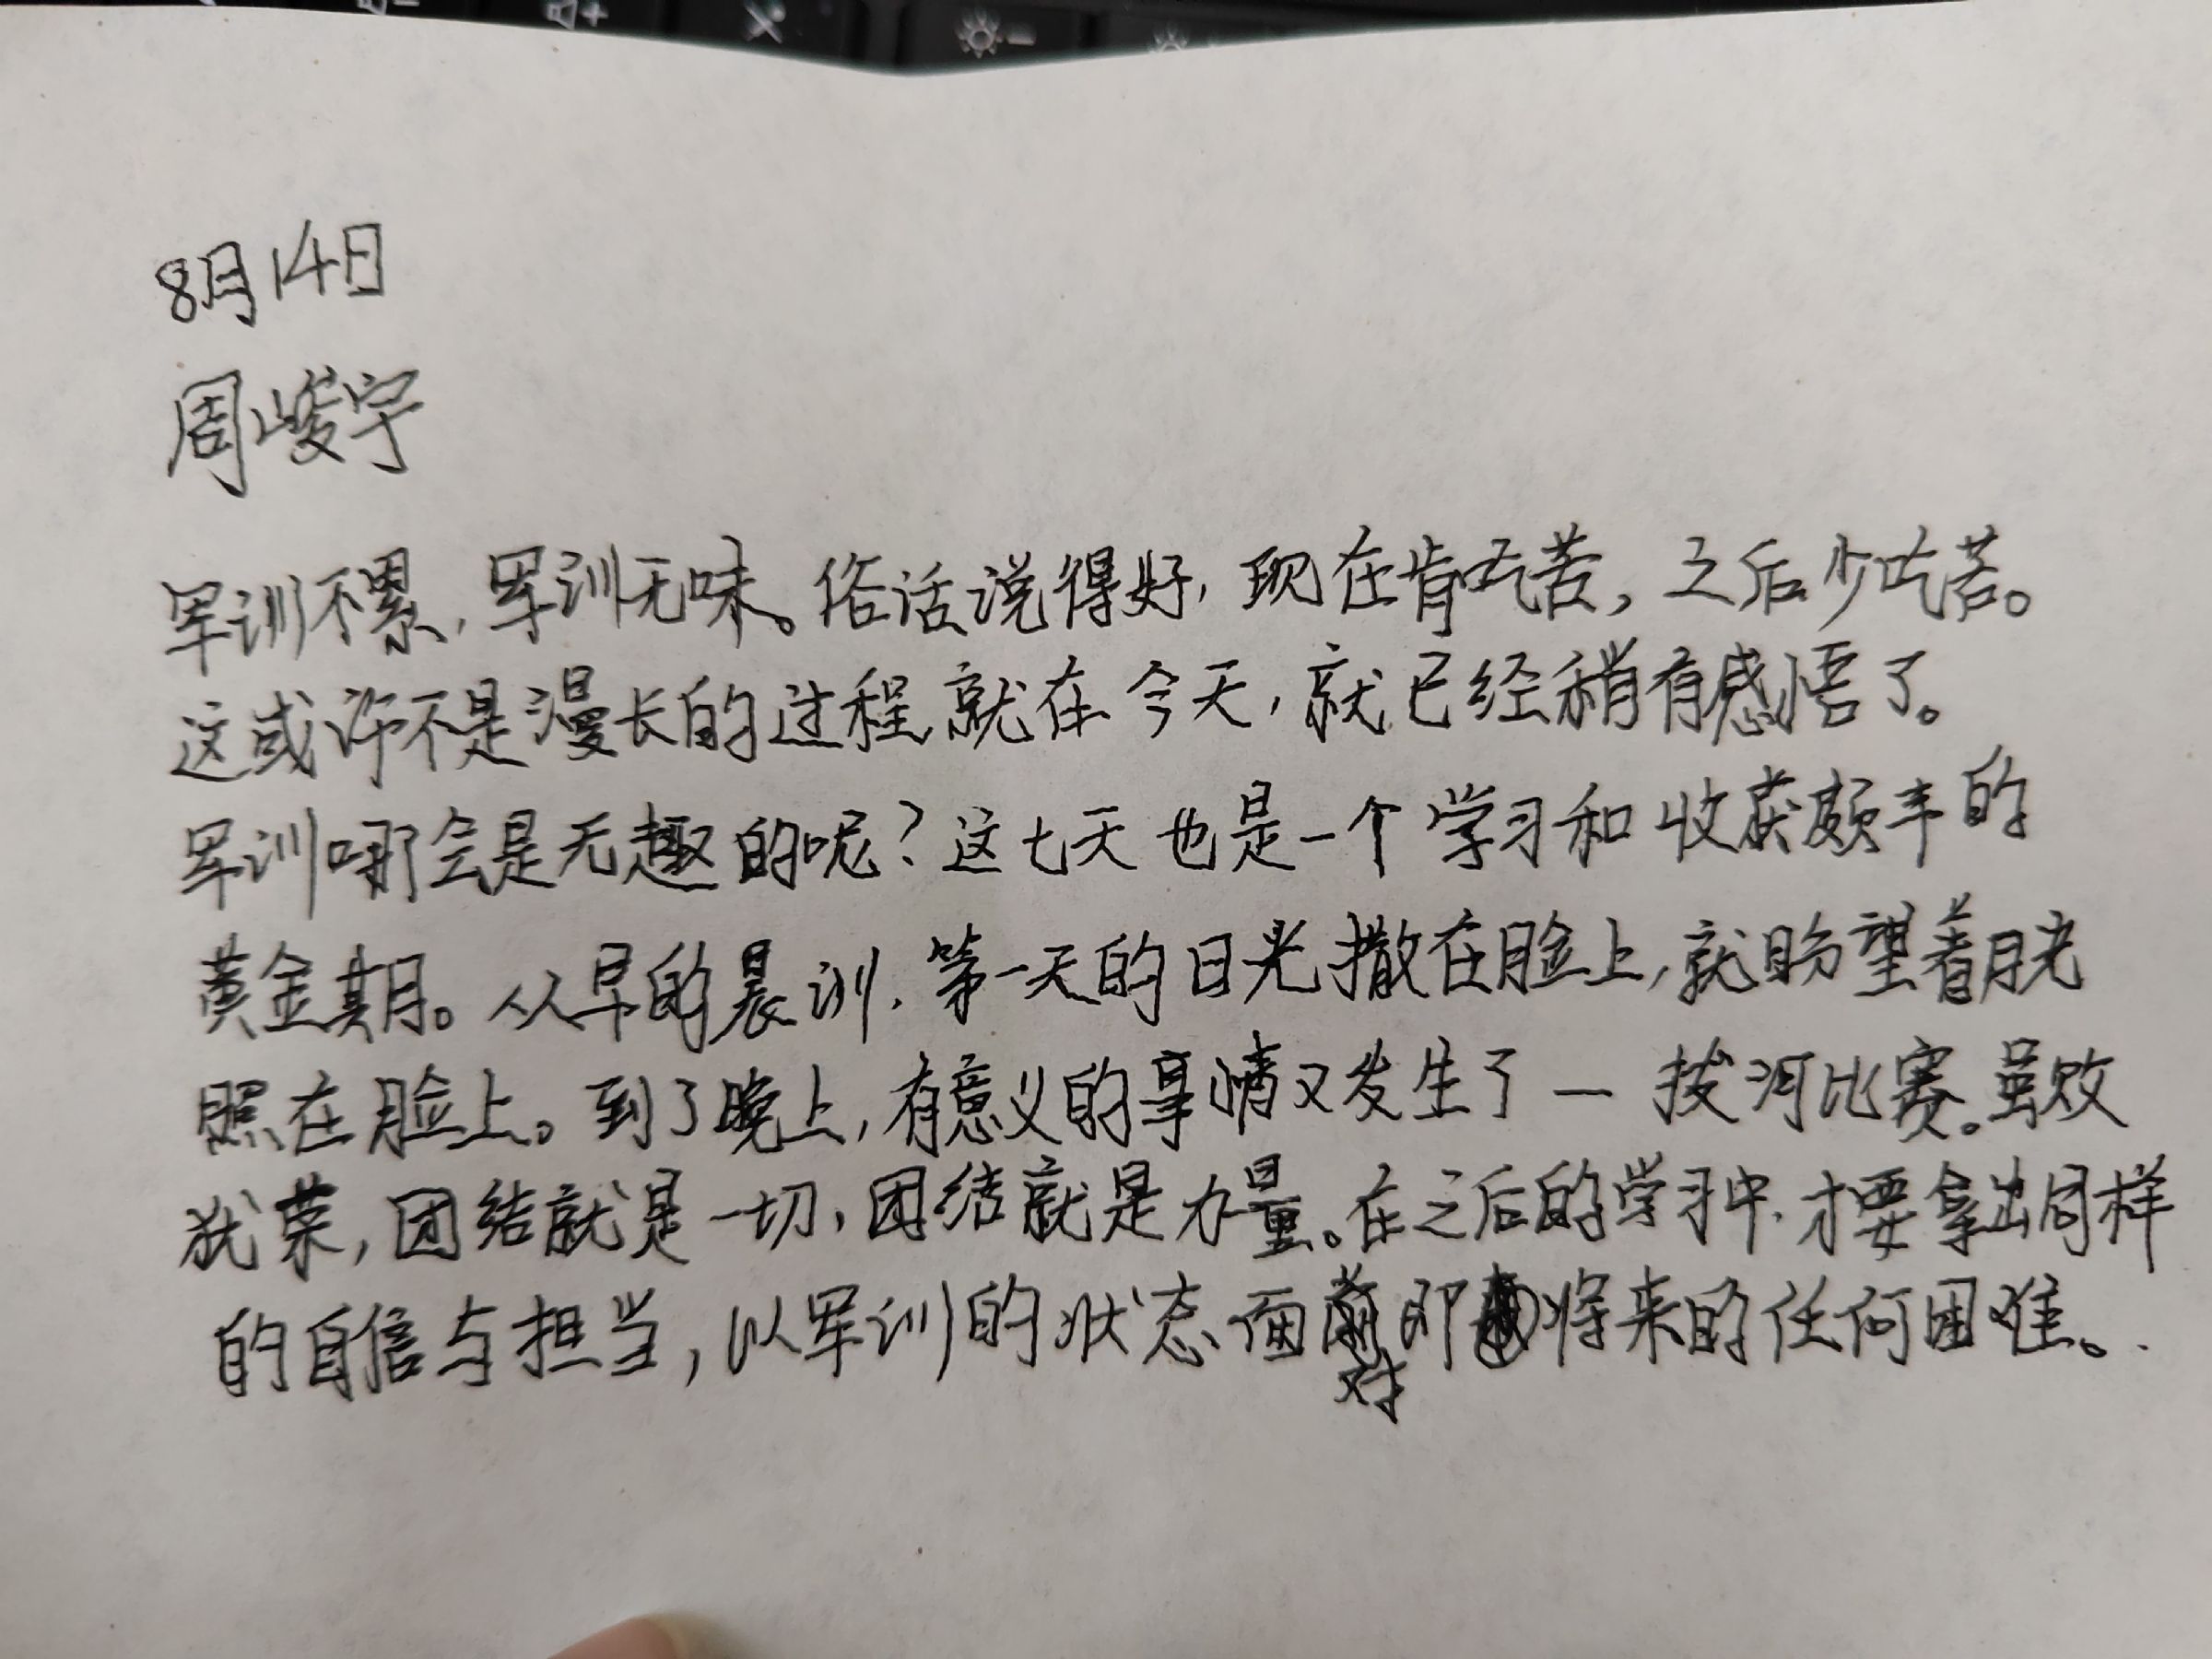 8月14日
周峻宇
军训不累,军训无味。俗话说得好,现在肯吃苦,之后少吃苦。
这或许不是漫长的过程,就在今天,就已经稍有感悟了。
军训哪会是无趣的呢?这七天也是一个学习和收获颇丰的
黄金期。从早的晨训,第一天的日光撒在脸上,就盼望着月光
照在脸上。到了晚上,有意义的事情又发生了—拔河比赛。虽败
犹荣,团结就是一切,团结就是力量。在之后的学习中,才要拿出同样
的自信与担当,以军训的状态面对即将来的任何困难。